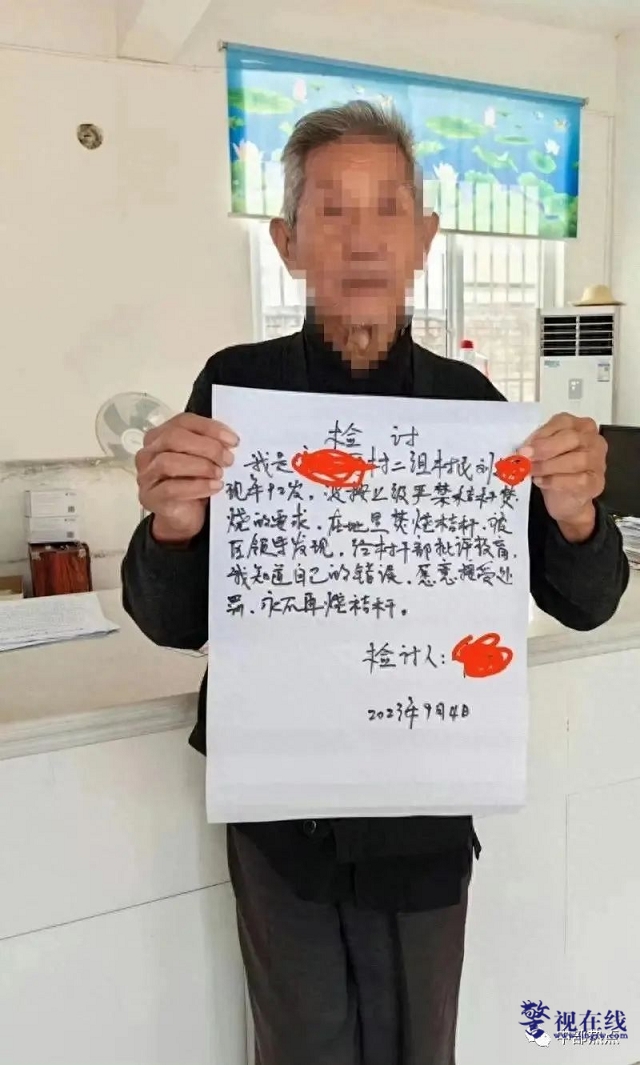 检 讨
我是 村二组村民刘
现年92岁，没按上级严禁秸秆焚
烧的要求，在地里焚烧秸秆，被
区领导发现，给村干部批评教育，
我知道自己的错误，愿意接受处
罚，永不再烧秸秆。
检讨人：
2023年9月4日
警视在线
中部热点